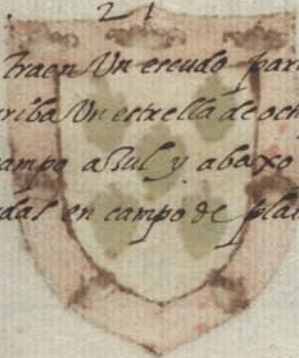 21
traen Un escudo par
riba Un estrella de och
campo aSul y abaxo
das en campo de pla